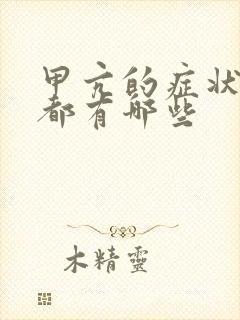 甲亢的症状
都有哪些
木精靈